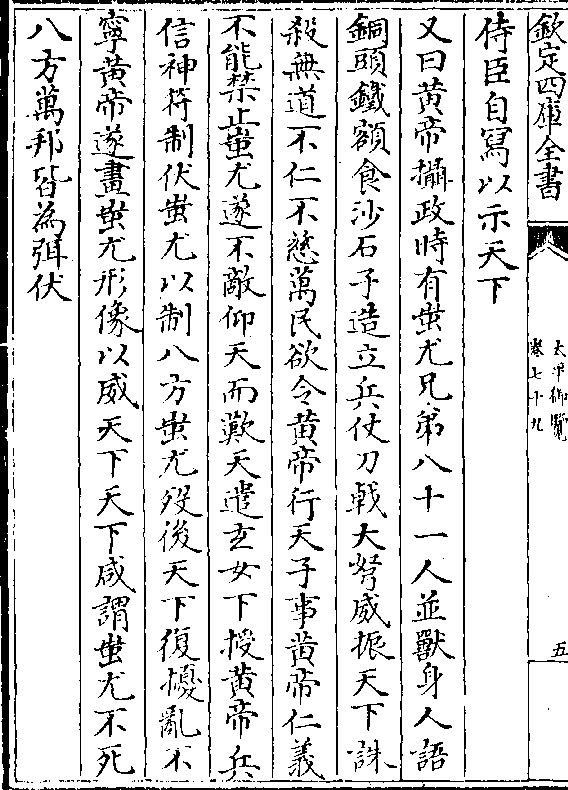 欽定四庫全書
太平御覽
卷七十九
五
侍臣自寫以示天下
又曰黄帝攝政時有蚩尤兄弟八十一人並獸身人語
銅頭鐵額食沙石子造立兵仗刀戟大弩威振天下誅
殺無道不仁不慈萬民欲令黄帝行天子事黄帝仁義
不能禁止蚩尤遂不敵仰天而歎天遣玄女下授黄帝兵
信神符制伏蚩尤以制八方蚩尤歿後天下復擾亂不
寧黄帝遂畫蚩尤形像以威天下天下咸謂蚩尤不死
八方萬邦皆為弭伏